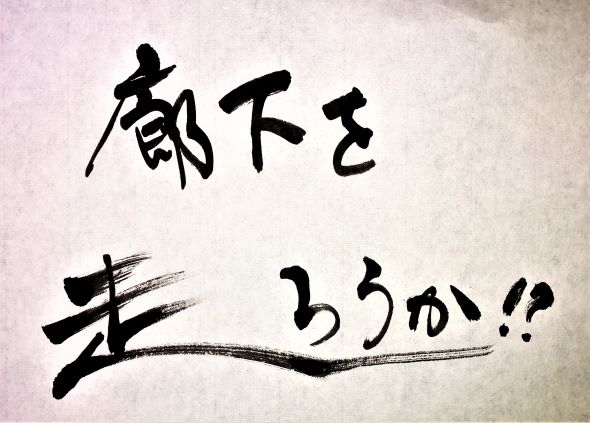 廊下を
走ろうか!?